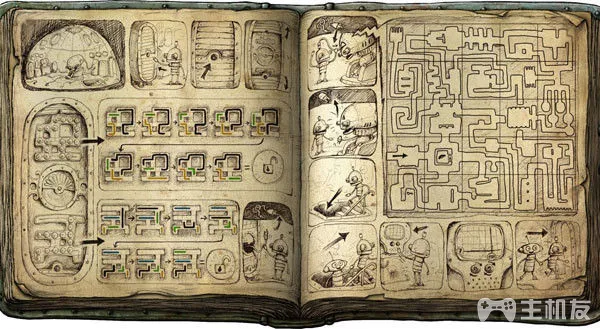 主机友